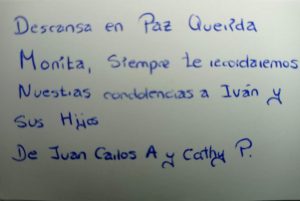 Descansa en Paz Querida
Monita, Siempre te recordaremos
Nuestras condolencias a Iván y
Sus Hijos
De Juan Carlos A y Cathy P.